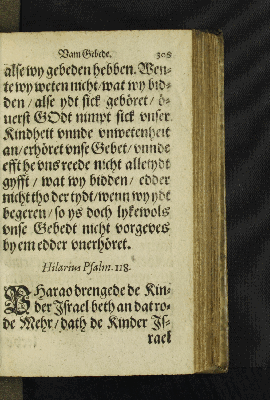 Vam Gebede. 308
alse wy gebeden hebben. Wen-
te wy weten nicht/ wat wy bid-
den/ alse ydt sick geböret/ ö-
uerst GOdt nimpt sick vnser
Kindheit vnnde vnwetenheit
an/ erhöret vnse Gebet/ vnnde
efft he vns reede nicht alletydt
gyfft/ wat wy bidden/ edder
nicht tho der tydt/ wenn wy ydt
begeren/ so ys doch lykewols
vnse Gebedt nicht vorgeves
by em edder vnerhöret.
Hilarius Psalm. 118.
PHarao drengede de Kin-
der Jsrael beth an dat ro-
de Mehr/ dath de Kinder Js-
rael